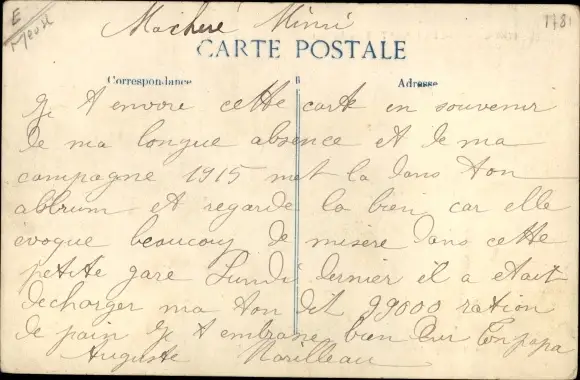 E
Meuse
1781
Machere Mimi
CARTE POSTALE
Correspondance
Adresse
Je t envoie cette carte en souvenir
de ma longue absence et de ma
campagne 1915 met la dans ton
abbrum et regarde la bien car elle
evoque beaucoup de misere dans cette
petite gare Lundi dernier il a etait
decharger ma ton dit 99000 ration
de pain Je t embrasse bien ton papa
Auguste